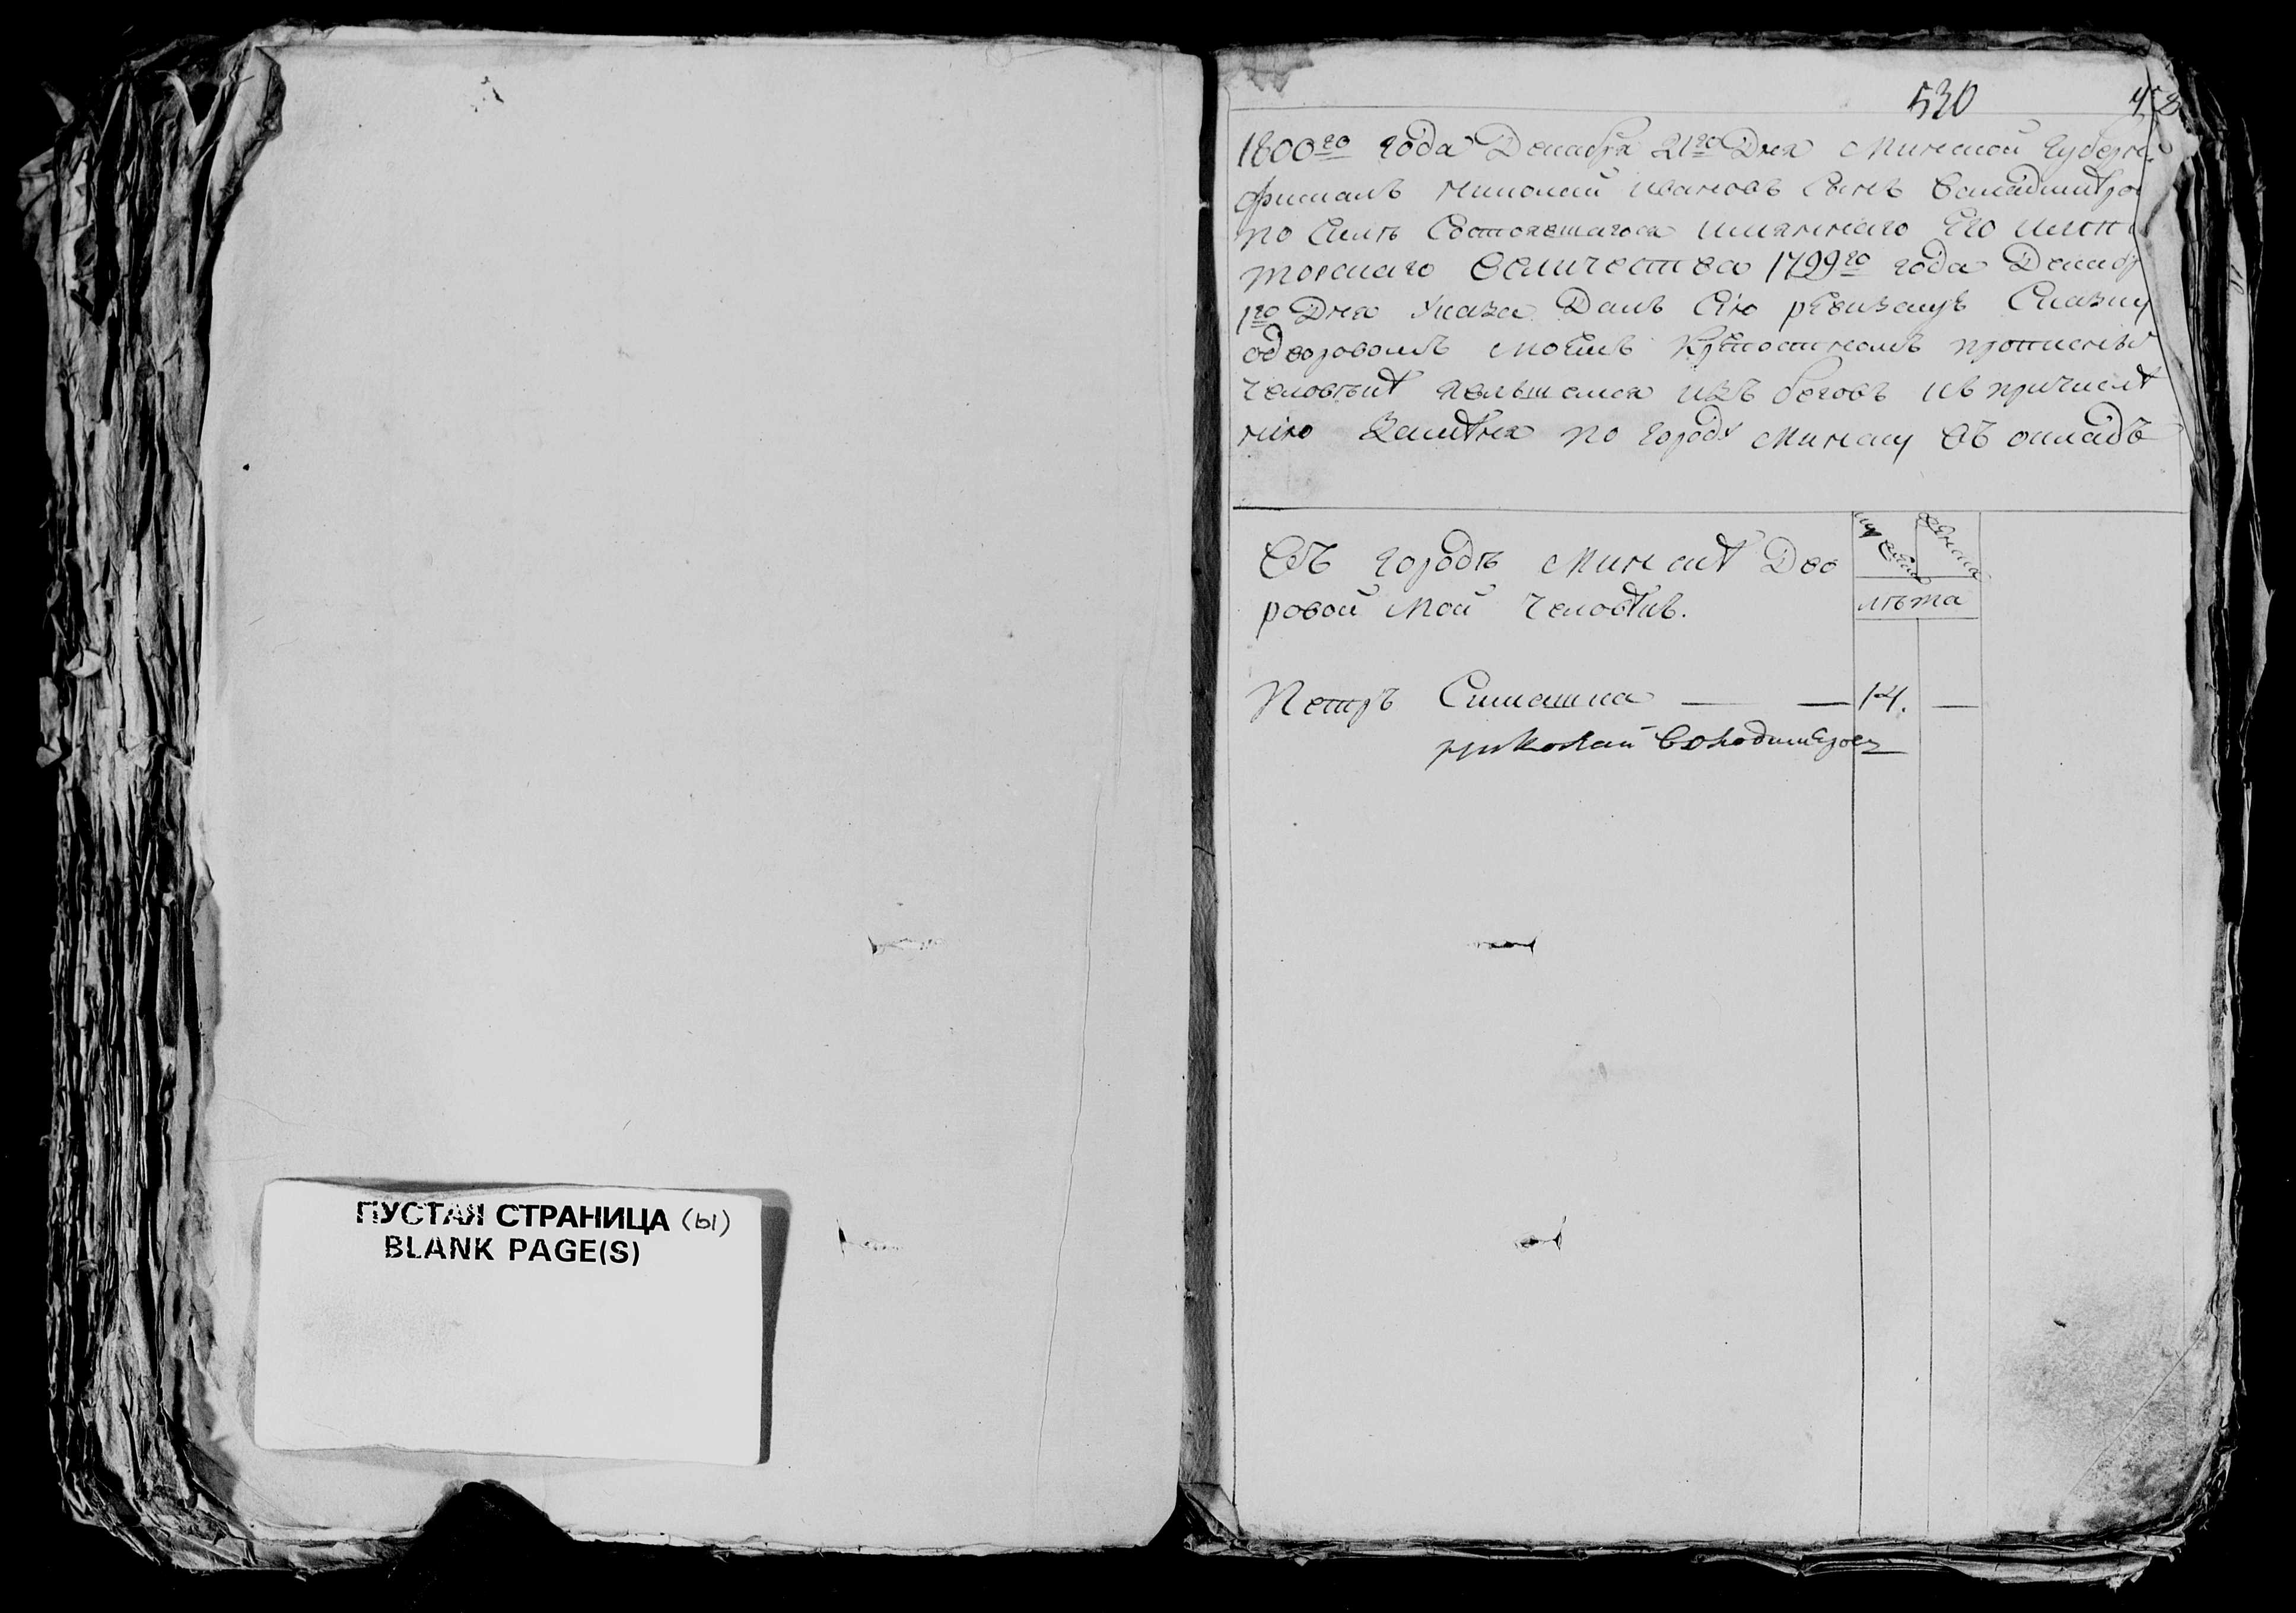 ПУСТАЯ СТРАНИЦА (ы)
BLANK PAGE(S)
530
1800го года Декабря 21го Дня Минской Губерн
фискалъ Николай Ивановъ Сынъ
по Силѣ Состоявшагося имяннаго Его импе
торскаго Величества 1799го года Декабр
1го Дня Указа Далъ Сію ревизкую Сказку
одворовомъ моемъ Крепостномъ
человѣкѣ явльшемся изъ беговъ къ причисле
нію по городу Минску въ окладъ
Въ городѣ Минскѣ Дво
ровой мой человѣкъ.
мужескъ
женска
лѣта
Петръ Симашка — — 14. —
николай володимеров